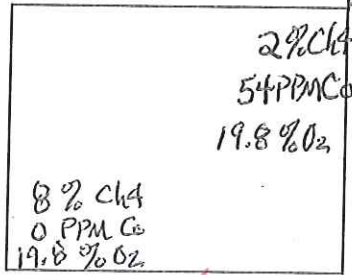 2%Ch4
54PPMCo
19.8%O2
8% Ch4
0 PPM Co
19.8% O2